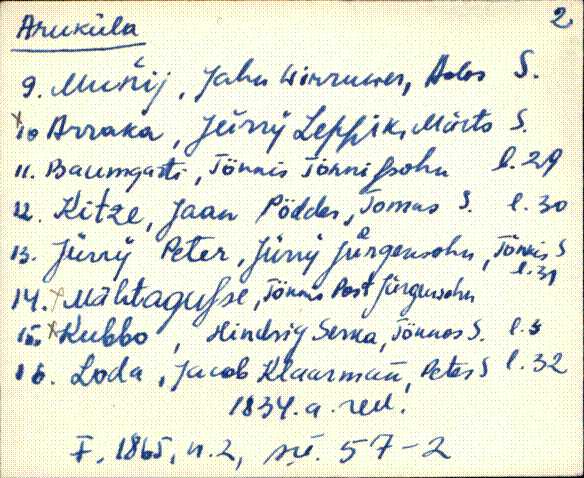 Aruküla 2
9. Muñij, Jahn Wirruwer, Ados S.
x 10 Arraka, Jürry Leppik, Märts S.
11. Baumgarti, Tönnis Tönnissohn l. 29
12. Kitze, Jaan Pödder, Tomas S. l. 30
13. Jürry Peter, Jürry Jürgensohn, Tönnis S
l. 31
14. x Mähtagusse, Tönnis Post Jürgensohn
15. x Kubbo, Hindrig Serka, Tönnos S. l. 3
16. Loda, Jacob Klaarmañ, Peters S l. 32
1834. a. rev.
F. 1865, n. 2, sü. 57-2